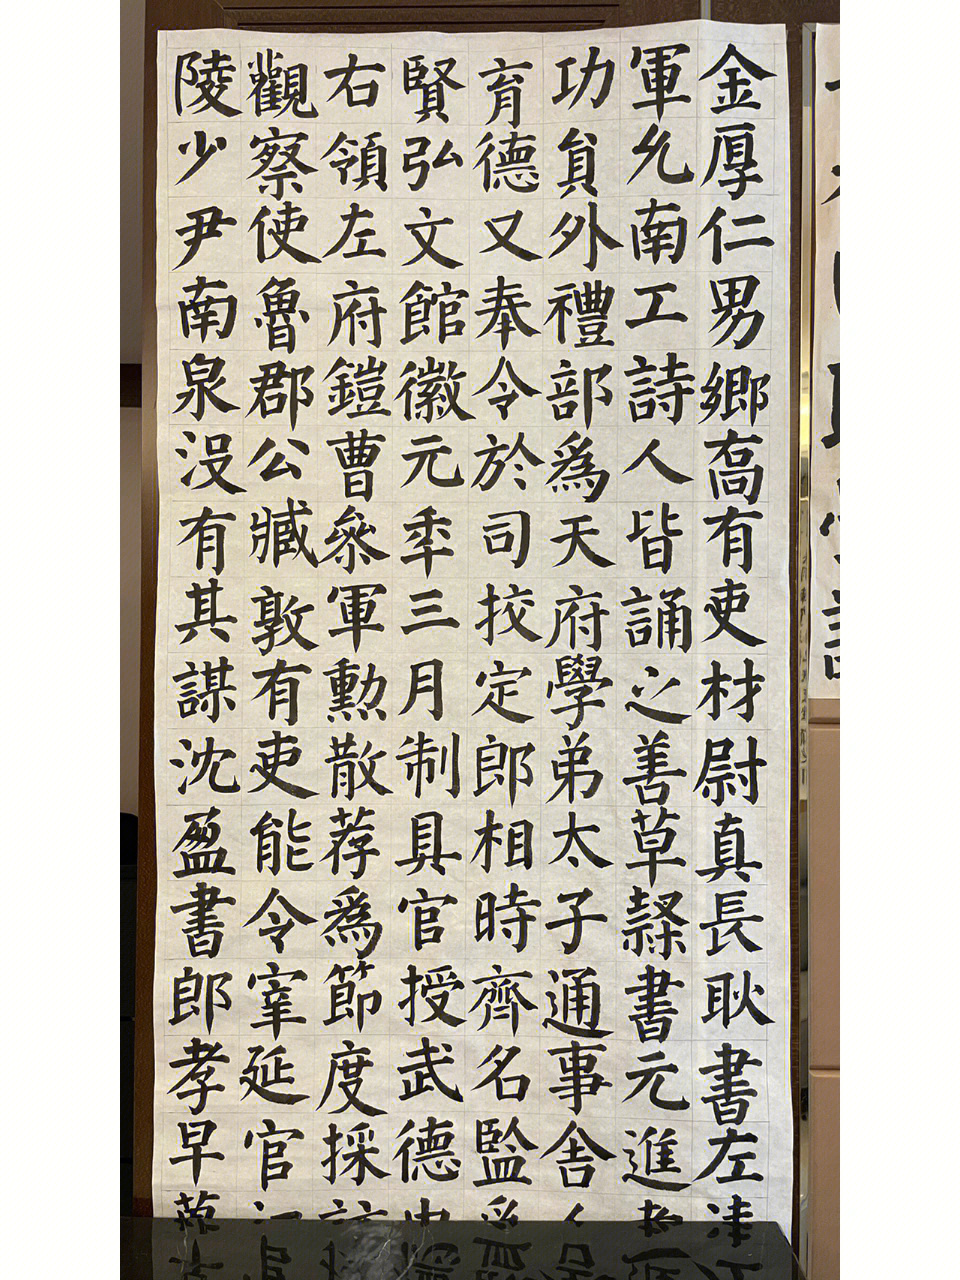 金厚仁男鄉髙有吏材尉真長耿書左
軍允南工詩人皆誦之善草隸書元進
功貟外禮部為天府學弟太子通事舎
育德又奉令於司挍定郎相時齊名監
賢弘文館徽元秊三月制具官授武德
右領左府鎧曹叅軍勲散荐為節度採
觀察使魯郡公臧敦有吏能令宰延官
陵少尹南泉没有其謀沈盈書郎孝早